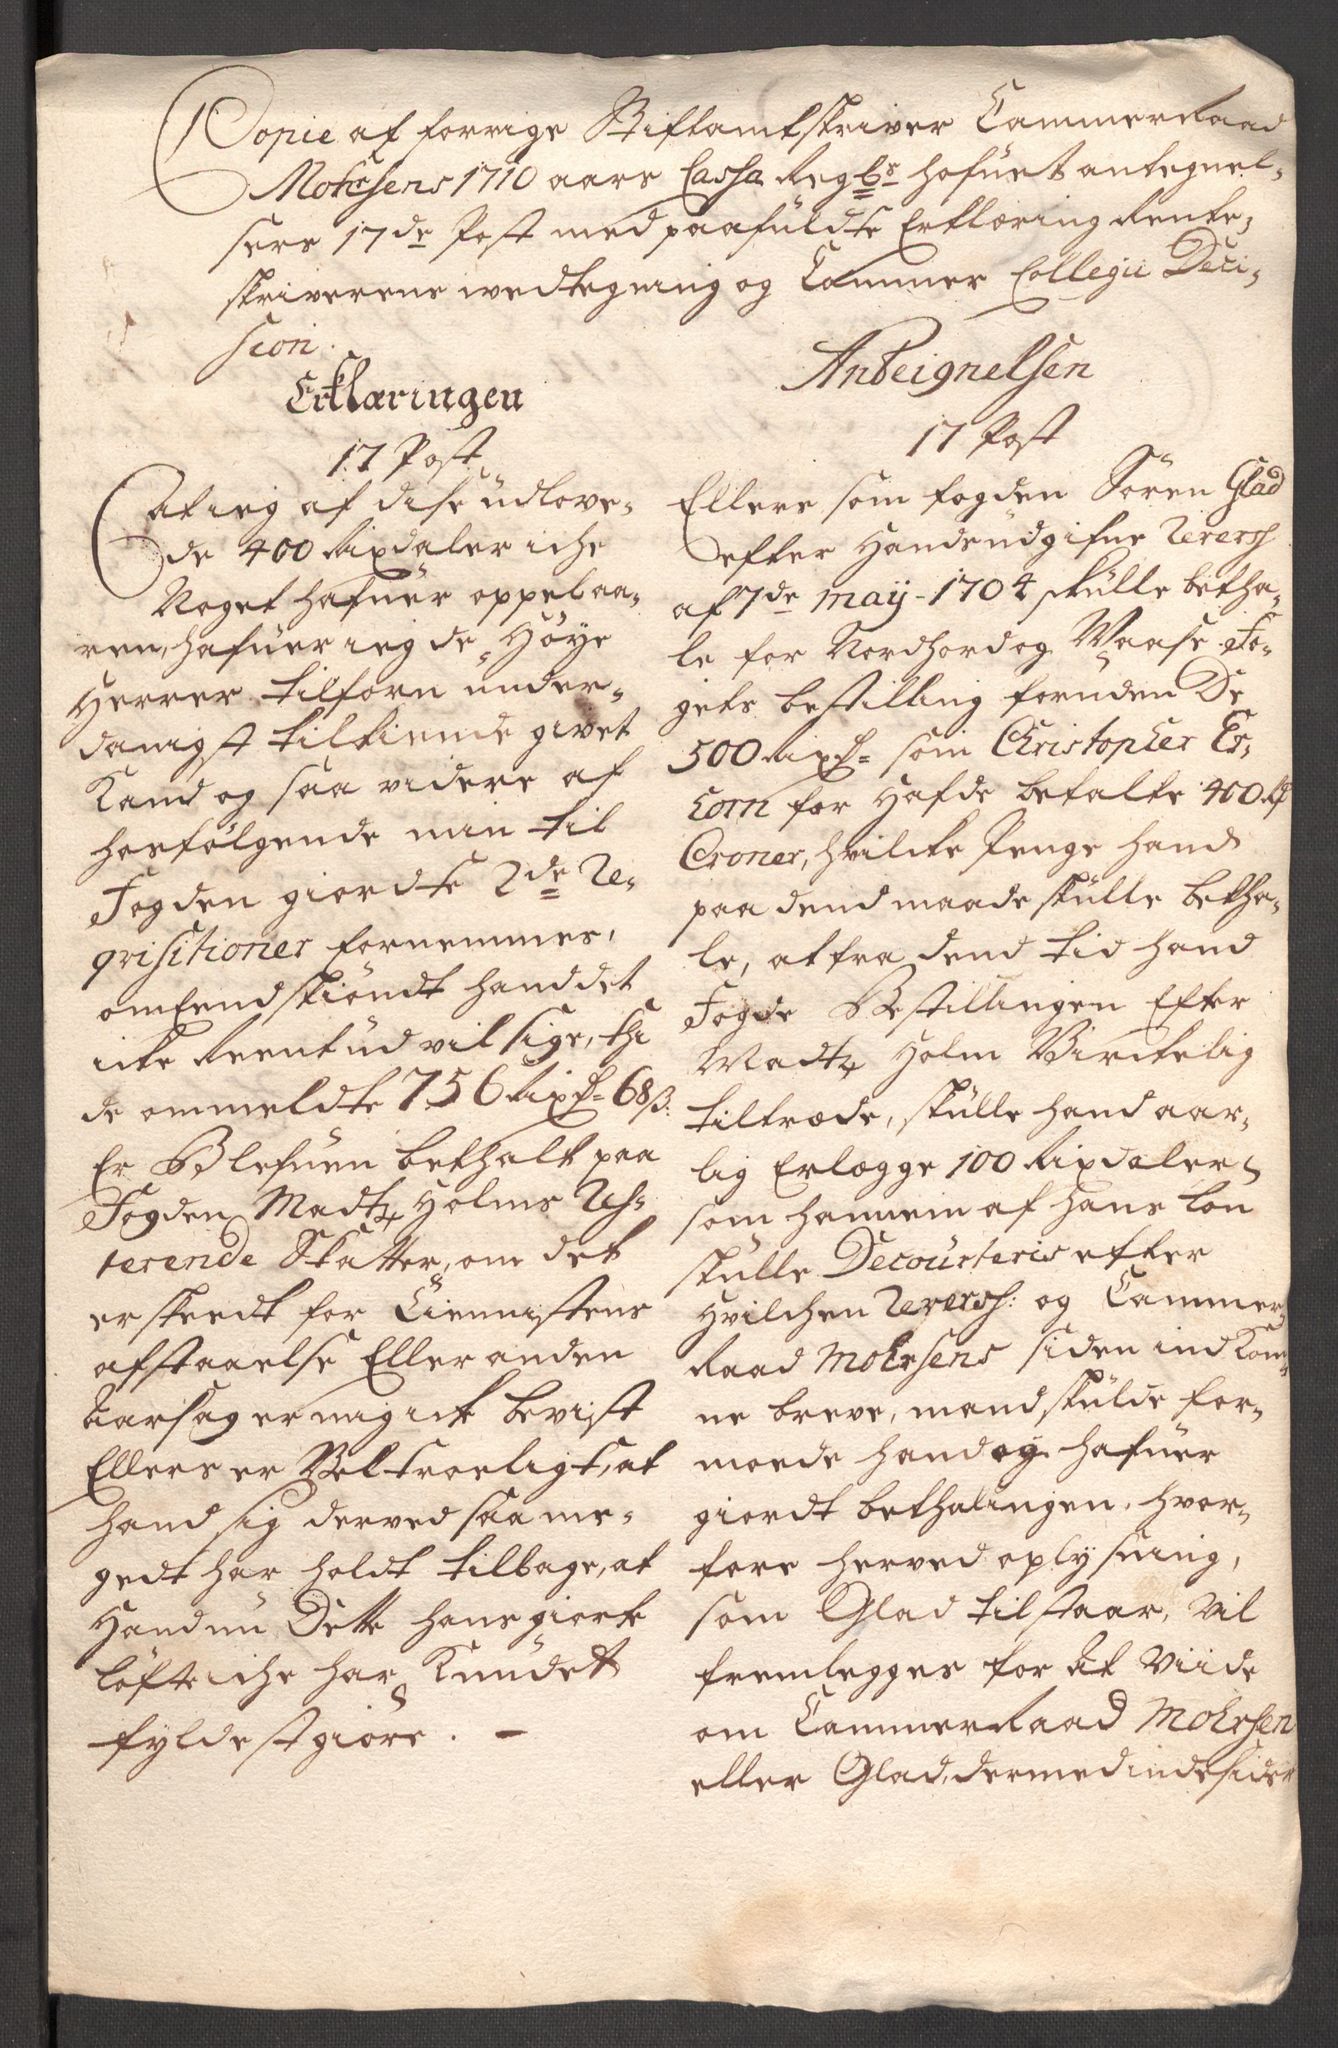 Copie af forrige Stiftamtskriver CammerRaad
Mohrsens 1710 aars Cassa Regbs hofuet antegnel-
sers 17de Post med paafuldte Erklæring Rente-
skriverens wedtegning og Cammer Collegii Deci-
sion.
Erklæringen
17 Post
At ieg af disse udlove-
de 400 Rixdaler iche
Noget hafuer oppebaa-
ren, hafuer ieg de Høye
Herrer tilforn under-
danigst tilkiende givet
Kand og saa videre af
hosfølgende min til
Fogden giordte 2de Re-
qvisitioner fornemmes,
omEendskiøndt hand det
icke Reent ud vil sige, thi
de ommeldte 756 Rixd= 68 s:
Er Blefuen bethalt paa
Fogden Madtz Holms Res-
terende Skatter, om det
er skeedt for Tiennistens
afstaaelse Eller anden
Aarsag er mig icke bevist
Ellers er Vel troeligt, at
hand sig derved saa me-
gedt har holdt tilbage, at
Hand nu Dette hans giorte
løfte iche har Kundet
fyldestgiøre. -
Anteignelsen
17 Post
Ellers som fogden Sören Glad
efter Hands udgifne Revers
af 7de Maij - 1704 skulle betha-
le for Nordhord og Waase Fo-
gets bestilling foruden De
500 Rixd= som Christopher Er-
corn for Hafde betalte 400 Rd
Croner, hvilcke Penge hand
paa dend maade skulle betha-
le, at fra dend tid hand
Fogde Bestillingen Efter
Madtz Holm Virckelig
tiltræde, skulle hand aar-
lig Erlægge 100 Rixdaler
som hannem af hans løn
skulle Decourteris efter
Hvilchen Revers: og Cammer
Raad Mohrsens siden ind Kom-
ne breve, mand skulde for-
moede hand og hafuer
giordt bethalingen, hvor-
fore herved oplysning,
som Glad tilstaar, vil
fremlegges for at viide
om CammerRaad Mohrsen
eller Glad, dermed indesider